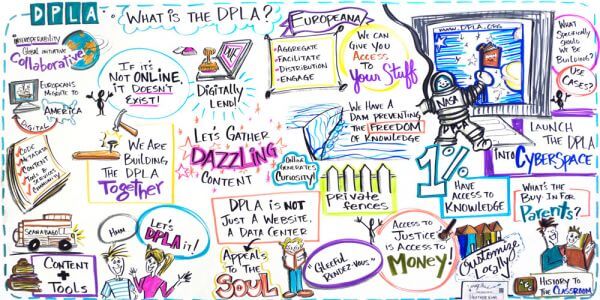 DPLA
WHAT IS THE DPLA?
INTEROPERABILITY
GLOBAL INITIATIVE
COLLABORATIVE
EUROPEANS MIGRATE TO
AMERICA
DIGITAL
IF IT'S
NOT ONLINE,
IT DOESN'T
EXIST!
DIGITALLY
LEND!
EUROPEANA
AGGREGATE
FACILITATE
DISTRIBUTION
ENGAGE
WE CAN
GIVE YOU
ACCESS
TO
YOUR STUFF
WWW.DPLA.ORG
NASA
WHAT
SPECIFICALLY
SHOULD
WE BE
BUILDING?
USE
CASES?
CODE
METADATA
CONTENT
TOOLS
SERVICES
COMMUNITY
WE ARE
BUILDING
THE DPLA
TOGETHER
LET'S GATHER
DAZZLING
CONTENT
WE HAVE A
DAM PREVENTING
THE FREEDOM
OF KNOWLEDGE
ONLINE
GENERATES
CURIOSITY!
PRIVATE
FENCES
1%
HAVE
ACCESS TO
KNOWLEDGE
LAUNCH
THE DPLA
INTO
CYBERSPACE
SCANABAGO!
CONTENT
+
TOOLS
HMM
LET'S
DPLA it!
DPLA IS NOT
JUST A WEBSITE,
A DATA CENTER
APPEALS
TO THE
SOUL
"GLEEFUL
RENDEZ-VOUS."
ACCESS TO
JUSTICE
IS ACCESS TO
MONEY!
CUSTOMIZE
LOCALLY
WHAT'S THE
BUY-IN FOR
PARENTS?
HISTORY TO
THE CLASSROOM